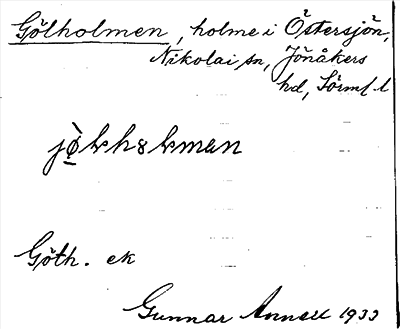 Gölholmen, holme i Östersjön,
Nikolai sn, Jönåkers
hd, Sörml. l
Göth. ek
Gunnar Annell 1933